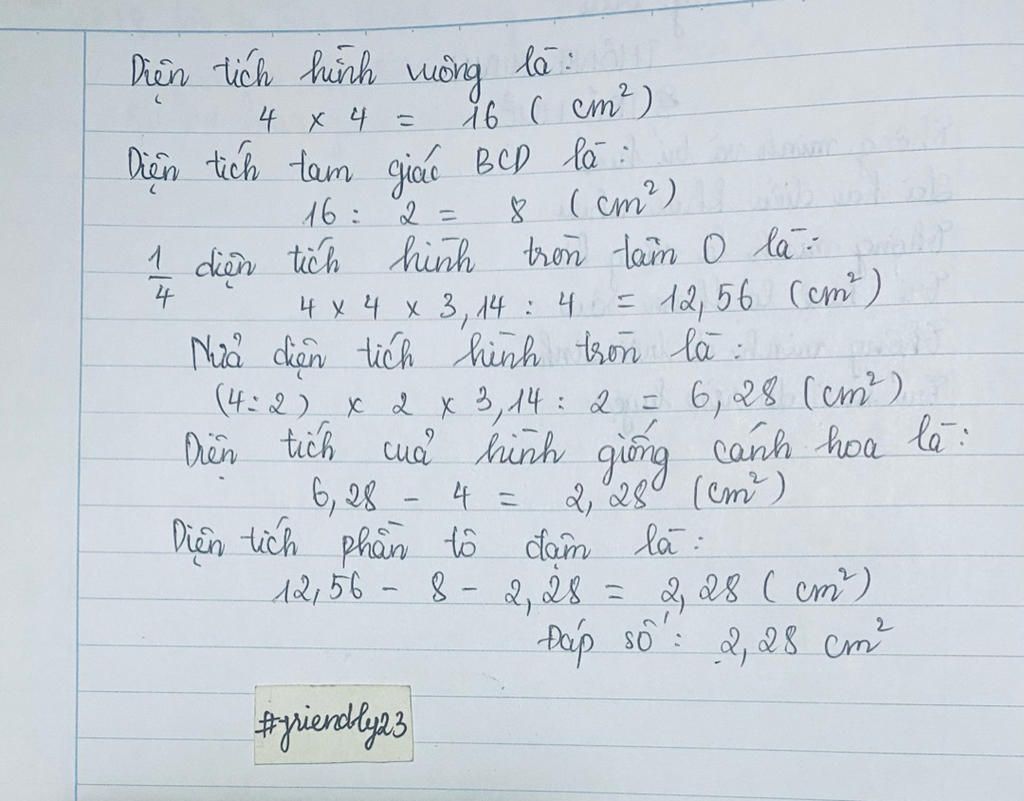 Diện tích hình vuông là:
4 × 4 = 16 (cm²)
Diện tích tam giác BCD là:
16 : 2 = 8 (cm²)
1/4 diện tích hình tròn tâm O là:
4 × 4 × 3,14 : 4 = 12,56 (cm²)
Nửa diện tích hình tròn là:
(4:2) × 2 × 3,14 : 2 = 6,28 (cm²)
Diện tích của hình giống cánh hoa là:
6,28 - 4 = 2,28 (cm²)
Diện tích phần tô đậm là:
12,56 - 8 - 2,28 = 2,28 (cm²)
Đáp số: 2,28 cm²
#friendly23